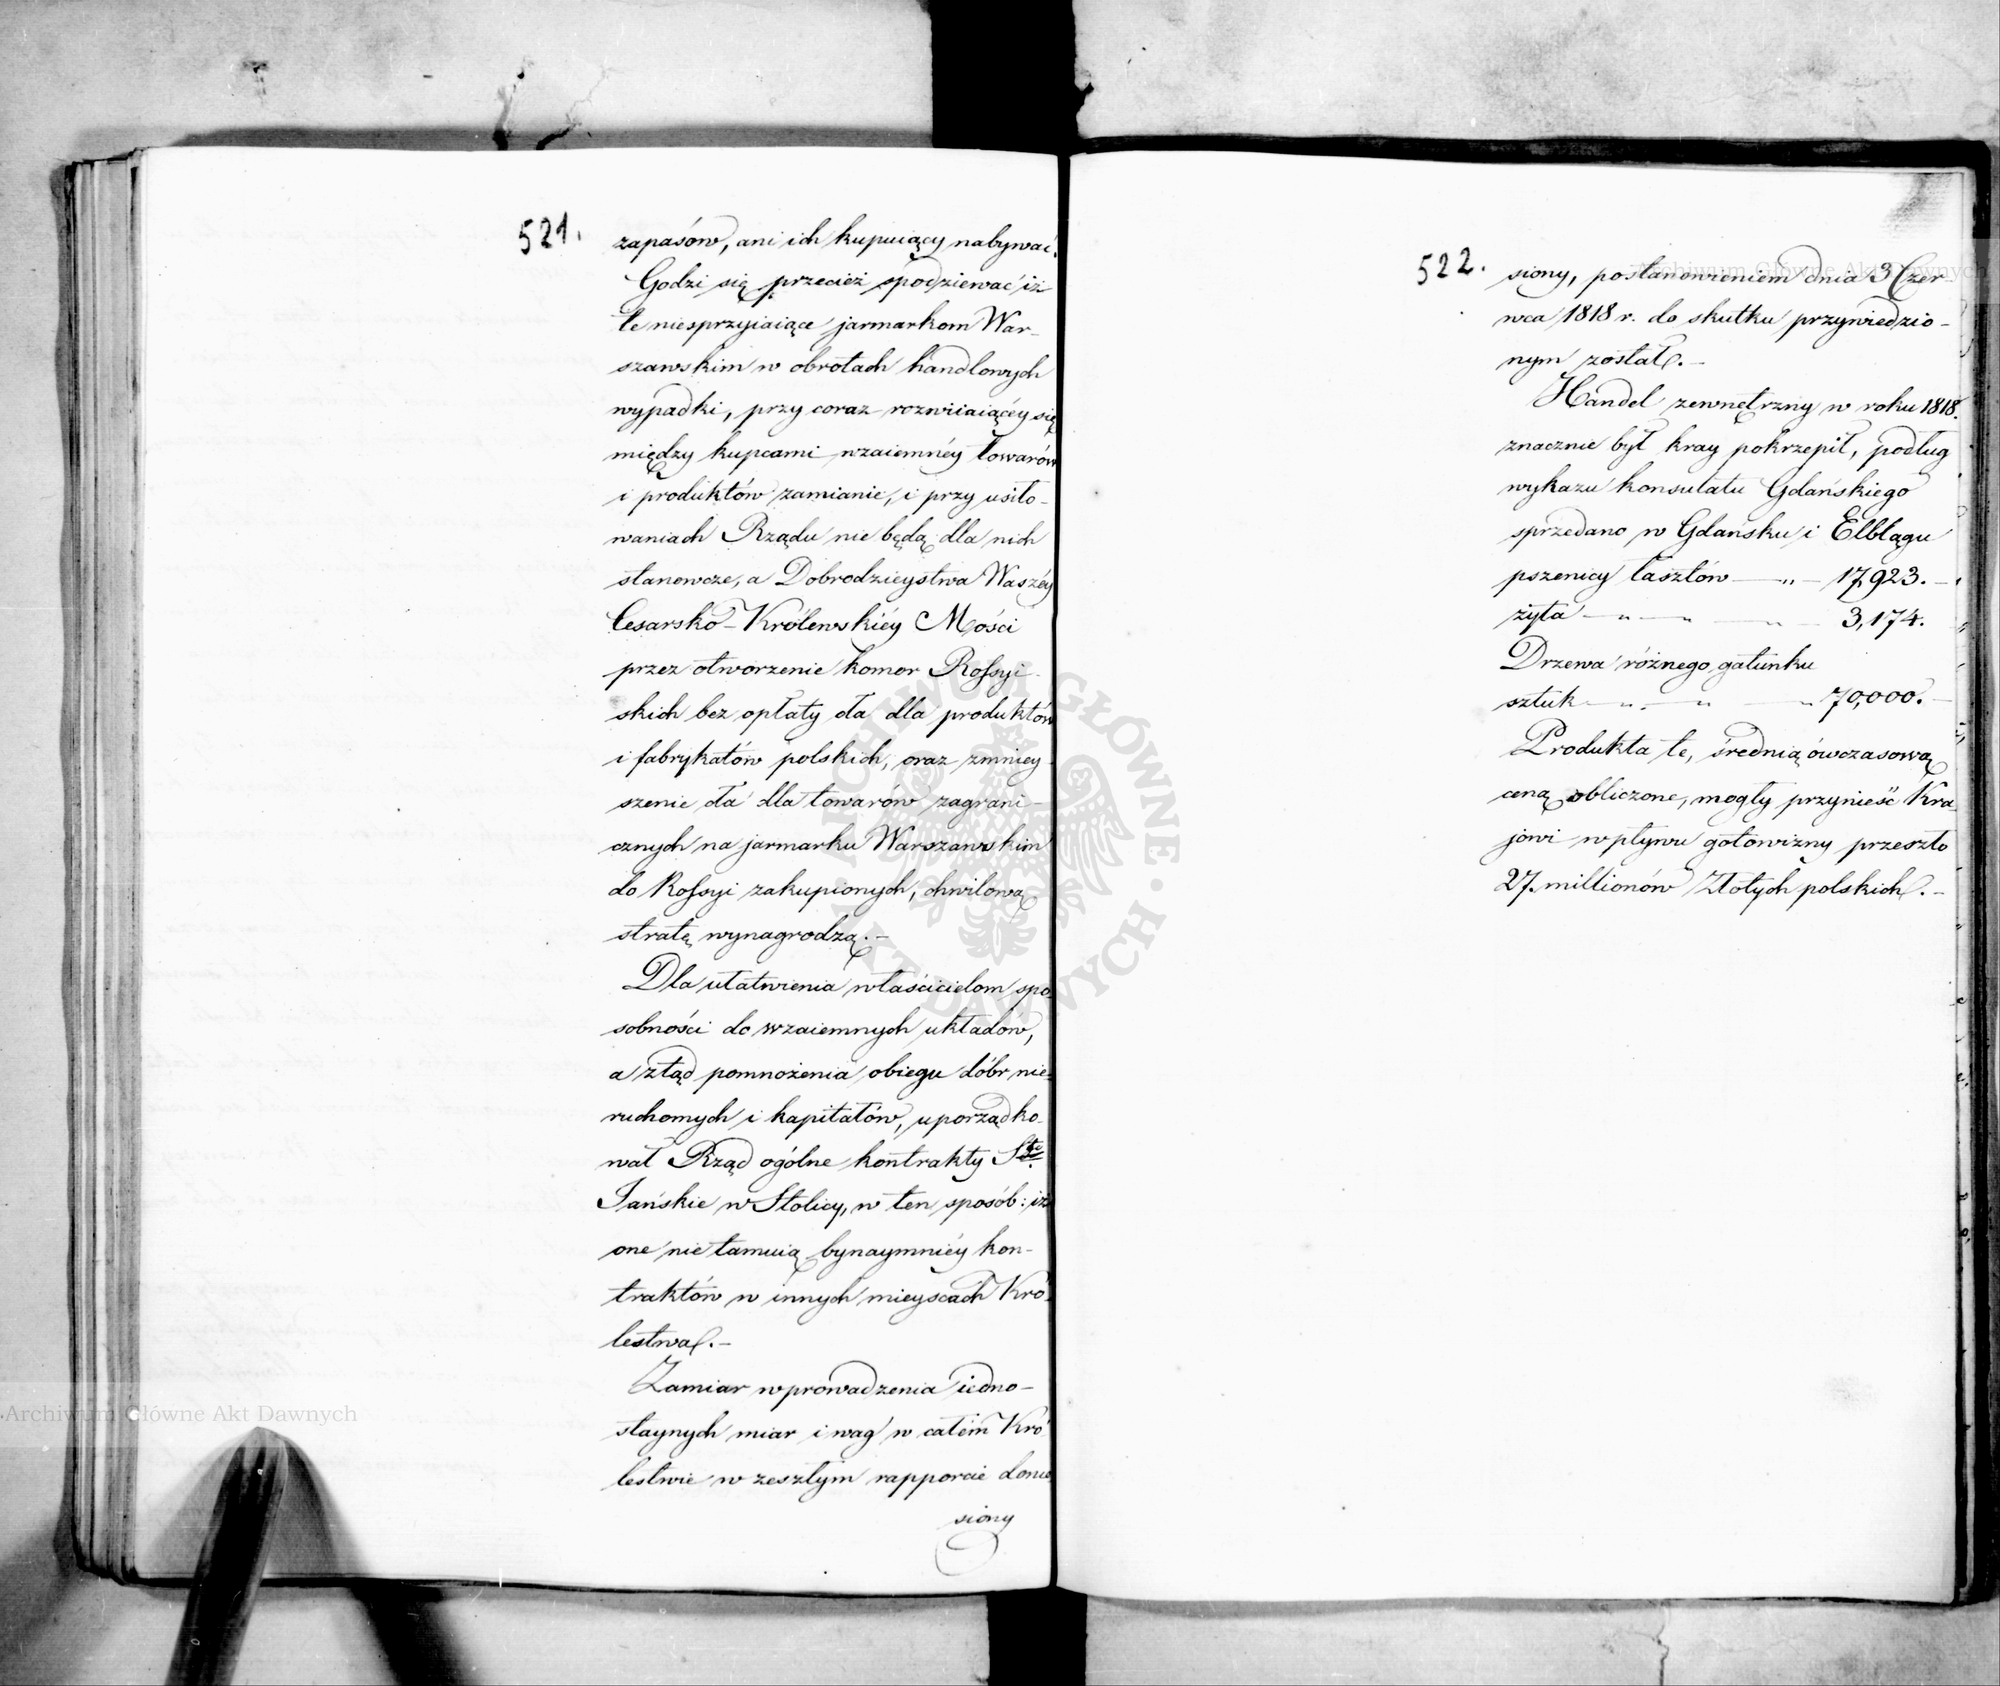 521.
zapasów, ani ich kupuiący nabywać.
Godzi się przecież spodziewać iż
te niesprzyiaiące jarmarkom War-
szawskim w obrotach handlowych
wypadki, przy coraz rozwiiaiącéy się
między kupcami wzaiemnéy towarów
i produktów zamianie, i przy usiło-
waniach Rządu nie będą dla nich
stanowcze, a Dobrodzieystwa Waszéy
Cesarsko-Królewskiéy Mości
przez otworzenie komor Rossyi-
skich bez opłaty cła dla produktów
i fabrykatów polskich, oraz zmniey-
szenie cła dla towarów zagrani-
cznych na jarmarku Warszawskim
do Rossyi zakupionych, chwilową
stratę wynagrodzą.-
Dla ułatwienia właścicielom spo-
sobności do wzaiemnych układow,
a ztąd pomnożenia obiegu dóbr nie-
ruchomych i kapitałów, uporządko-
wał Rząd ogólne kontrakty Sto
Jańskie w Stolicy, w ten sposób: iż
one nie tamuią bynaymniéy kon-
traktów w innych mieyscach Kró-
lestwa.-
Zamiar wprowadzenia iedno-
staynych miar i wag w całém Kró-
lestwie w zeszłym rapporcie donie-
siony
522.
siony, postanowieniem dnia 3 Czer-
wca 1818 r. do skutku przywiedzio-
nym został.-
Handel zewnętrzny w roku 1818.
znacznie był kray pokrzepił, podług
wykazu konsulatu Gdańskiego
sprzedano w Gdańsku i Elblągu
pszenicy łasztów — „ — 17,923.-
żyta — „ — „ — „ — 3,174.
Drzewa różnego gatunku
sztuk — „ — „ „ 70,000.-
Produkta te, średnią ówczasową
ceną obliczone, mogły przynieść Kra-
jowi wpływu gotowizny przeszło
27. millionów Złotych polskich.-
Archiwum Główne Akt Dawnych
Archiwum Główne Akt Dawnych
ARCHIWUM GŁÓWNE AKT DAWNYCH